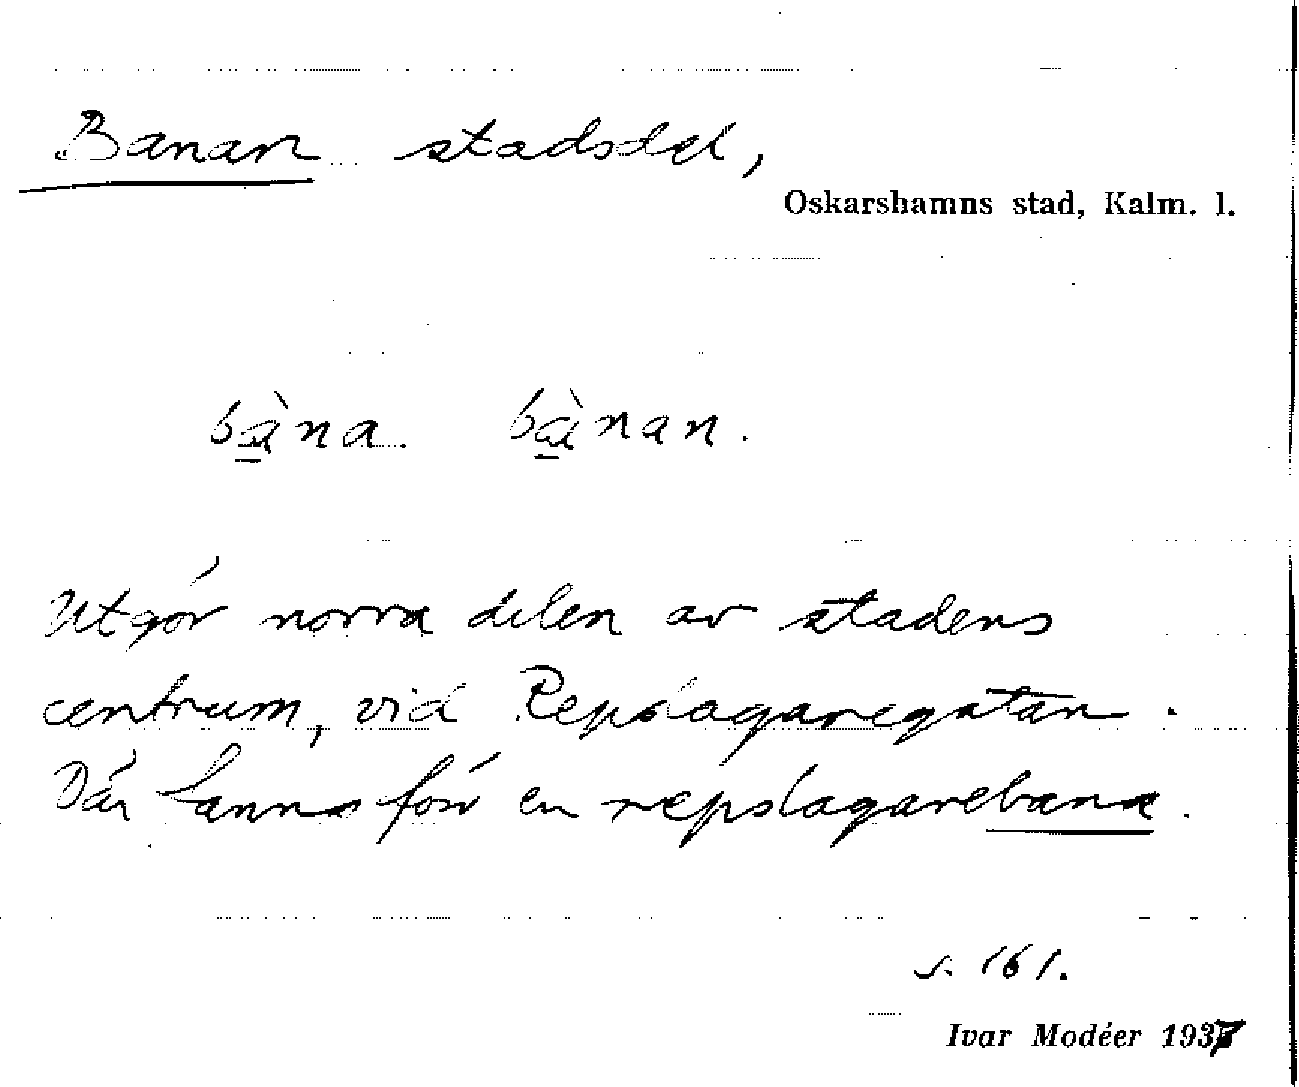 Banan stadsdel,
Oskarshamns stad, Kalm. l.
bà̱na. bà̱nan.
Utgör norra delen av stadens
centrum, vid Repslagaregatan.
Där fanns förr en repslagarebana.
s. 161.
Ivar Modéer 1937